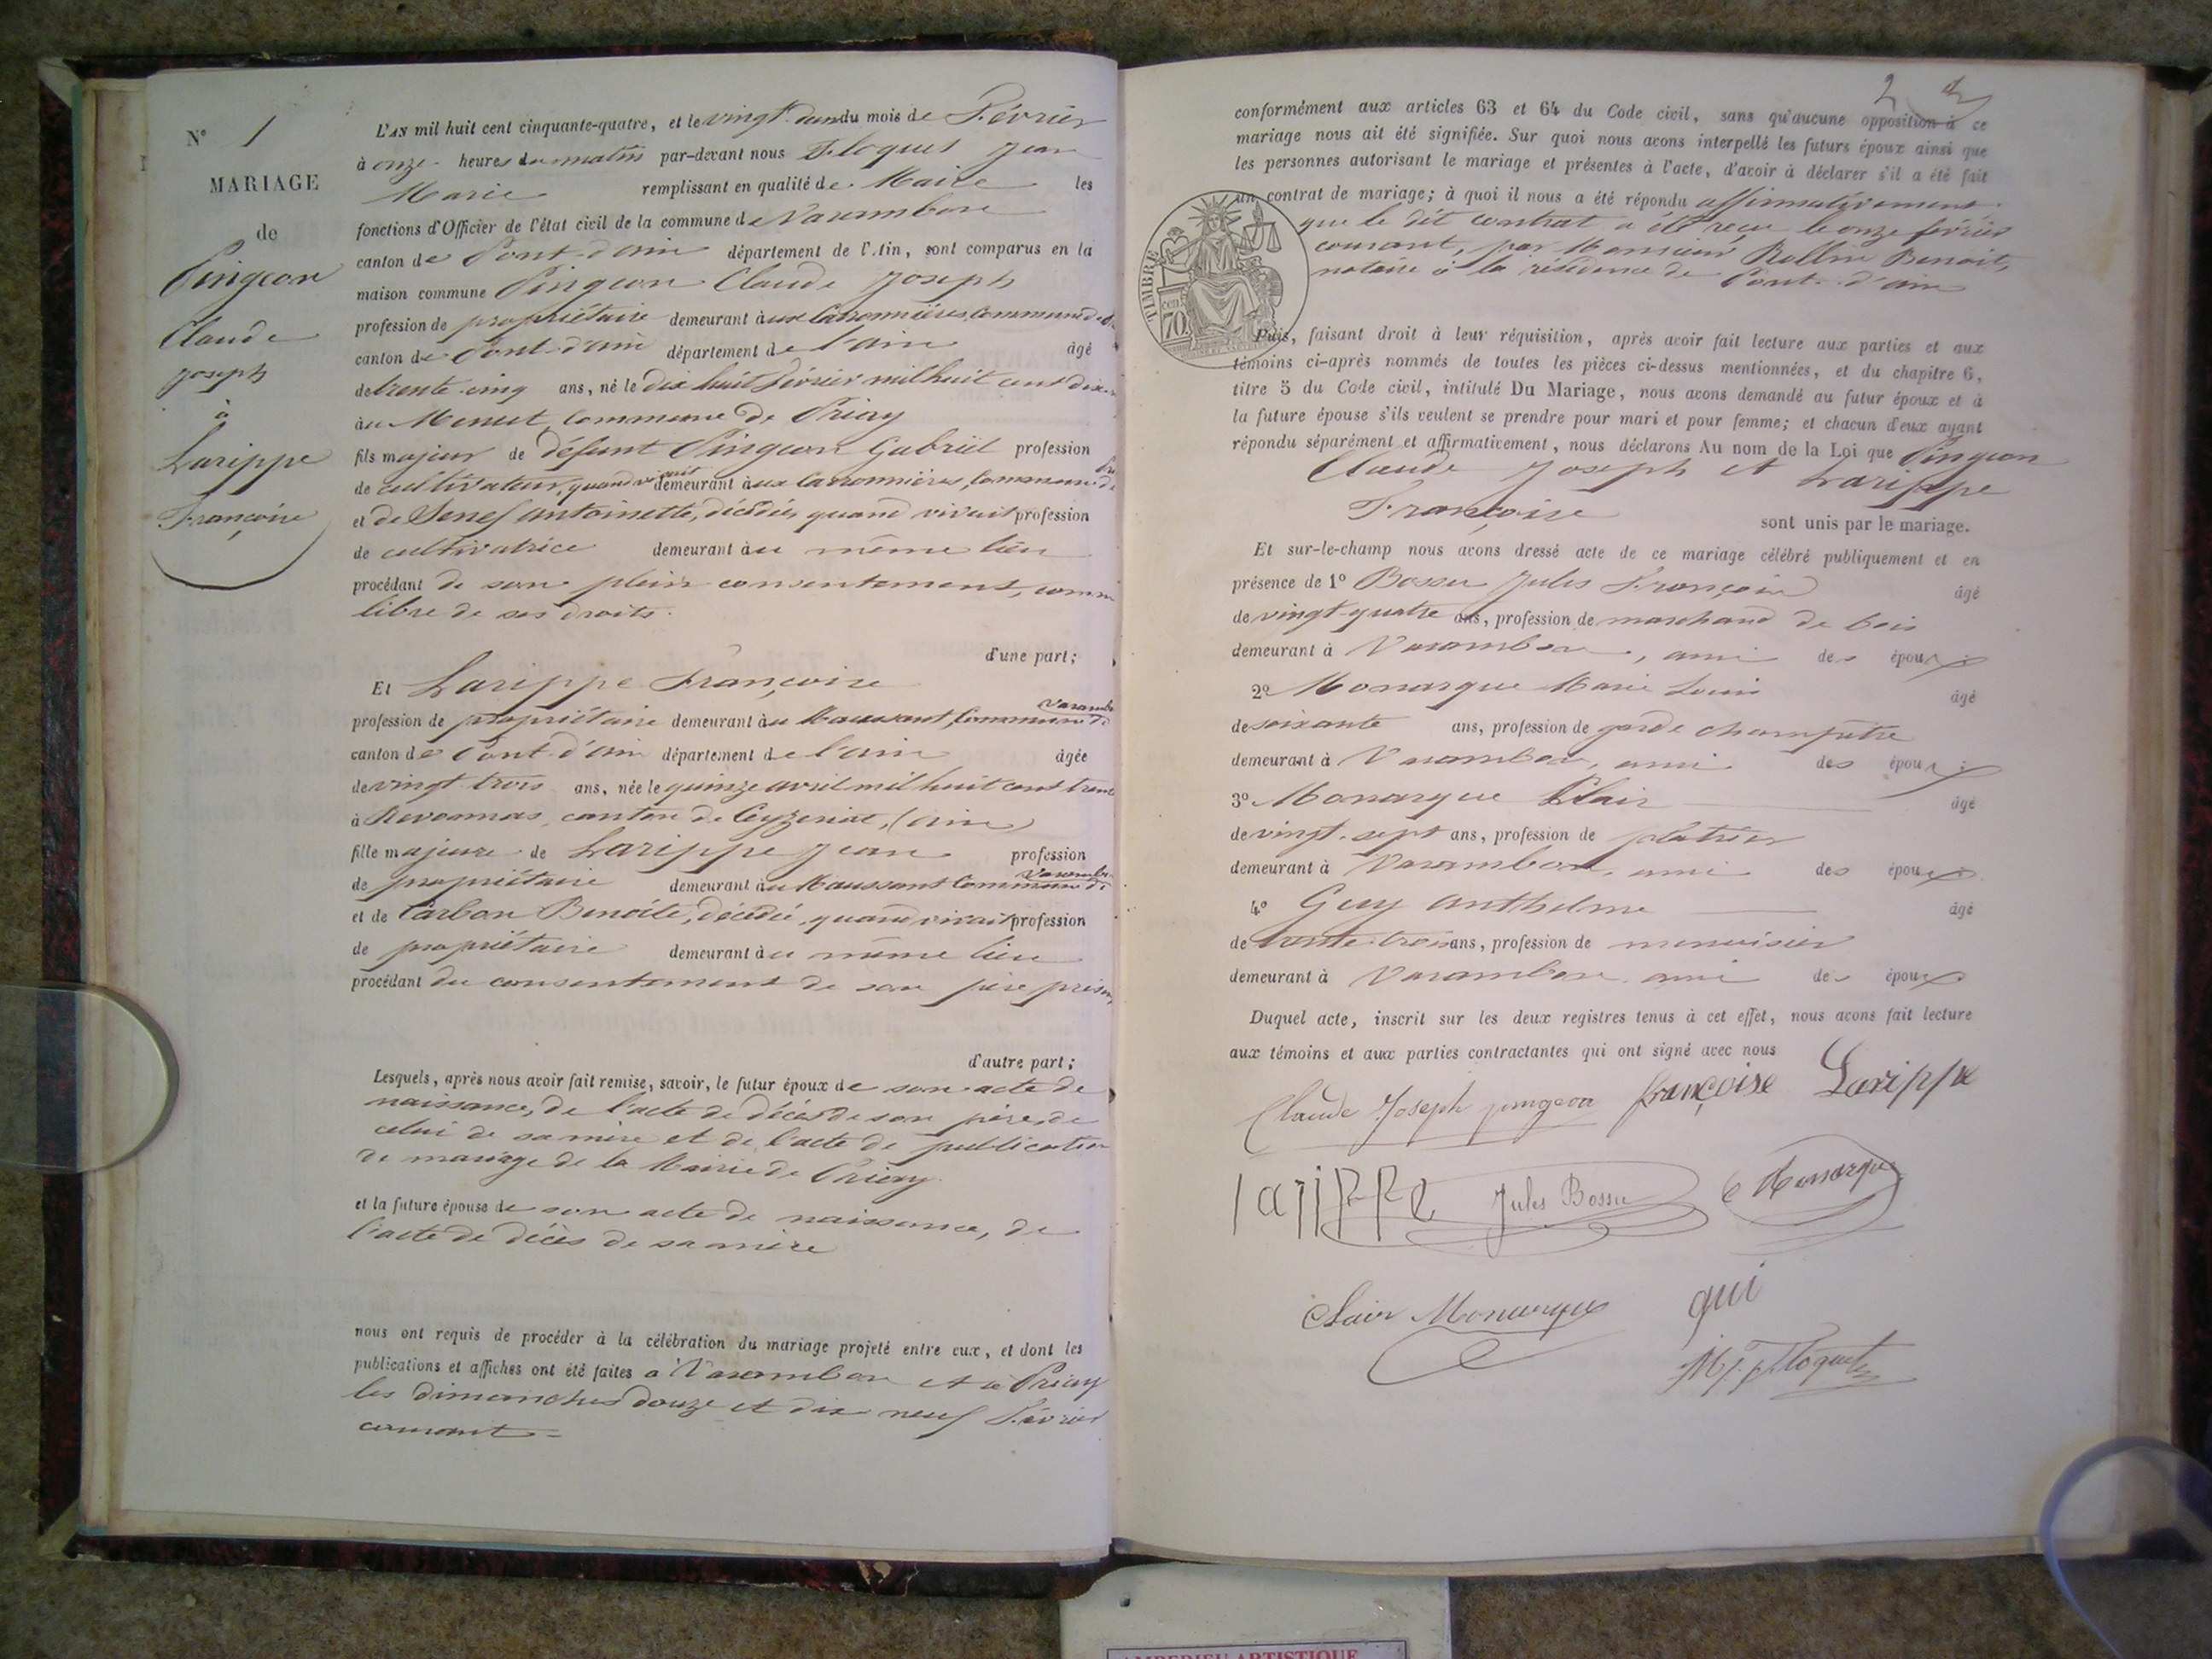 N° 1
MARIAGE
de
Pingeon
Claude
Joseph
à
Larippe
Françoise
L'AN mil huit cent cinquante-quatre, et le vingt du mois de Février
à onze heures du matin par-devant nous Floquet Jean
Marie remplissant en qualité de Maire les
fonctions d'Officier de l'état civil de la commune de Varambon
canton de Pont-d'ain département de l'Ain, sont comparus en la
maison commune Pingeon Claude Joseph
profession de propriétaire demeurant aux Carronnières, Commune de
canton de Pont-d'ain département de l'ain âgé
de trente-cinq ans, né le dix huit Février mil huit cent dix
au Commune de Priay
fils majeur de défunt Pingeon Gabriel profession
de cultivateur, quand vivait demeurant aux Carronnières, Commune de
et de Antoinette, décédée, quand vivait profession
de cultivatrice demeurant au même lieu
procédant de son plein consentement, comme
libre de ses droits.
d'une part;
Et Larippe Françoise
profession de propriétaire demeurant au Maussant, Commune de Varambon
canton de Pont-d'ain département de l'ain âgée
de vingt-trois ans, née le quinze avril mil huit cent trente
à Revonnas, canton de Ceyzeriat, (ain)
fille majeure de Larippe Jean profession
de propriétaire demeurant au Maussant Commune de Varambon
et de Carbon Benoîte, décédée, quand vivait profession
de propriétaire demeurant au même lieu
procédant du consentement de son père
d'autre part;
Lesquels, après nous avoir fait remise, savoir, le futur époux de son acte de
naissance, de l'acte de décès de son père, de
celui de sa mère et de l'acte de publication
de mariage de la Mairie de Priay.
et la future épouse de son acte de naissance, de
l'acte de décès de sa mère
nous ont requis de procéder à la célébration du mariage projeté entre eux, et dont les
publications et affiches ont été faites à Varambon et à Priay
les dimanches douze et dix neuf Février
courant =
2
conformément aux articles 63 et 64 du Code civil, sans qu'aucune opposition à ce
mariage nous ait été signifiée. Sur quoi nous avons interpellé les futurs époux ainsi que
les personnes autorisant le mariage et présentes à l'acte, d'avoir à déclarer s'il a été fait
un contrat de mariage; à quoi il nous a été répondu affirmativement.
que le dit contrat a été reçu le onze février
courant, par Monsieur Rollin Benoit,
notaire à la résidence de Pont-d'ain
TIMBRE
cen.
70.
Puis, faisant droit à leur réquisition, après avoir fait lecture aux parties et aux
témoins ci-après nommés de toutes les pièces ci-dessus mentionnées, et du chapitre 6,
titre 5 du Code civil, intitulé Du Mariage, nous avons demandé au futur époux et à
la future épouse s'ils veulent se prendre pour mari et pour femme; et chacun d'eux ayant
répondu séparément et affirmativement, nous déclarons Au nom de la Loi que Pingeon
Claude Joseph et Larippe
Françoise sont unis par le mariage.
Et sur-le-champ nous avons dressé acte de ce mariage célébré publiquement et en
présence de 1° Bossu Jules François âgé
de vingt-quatre ans, profession de marchand de bois
demeurant à Varambon, ami des époux;
2° Monarque Marie Louis âgé
de soixante ans, profession de garde champêtre
demeurant à Varambon, ami des époux;
3° Monarque Clair âgé
de vingt-sept ans, profession de platrier
demeurant à Varambon, ami des époux.
4° Guy Anthelme âgé
de trente-trois ans, profession de menuisier
demeurant à Varambon ami des époux
Duquel acte, inscrit sur les deux registres tenus à cet effet, nous avons fait lecture
aux témoins et aux parties contractantes qui ont signé avec nous
Claude Joseph pingeon françoise Larippe
larippe Jules Bossu Monarque
Clair Monarque gui
Floquet
AMBERIEU ARTISTIQUE